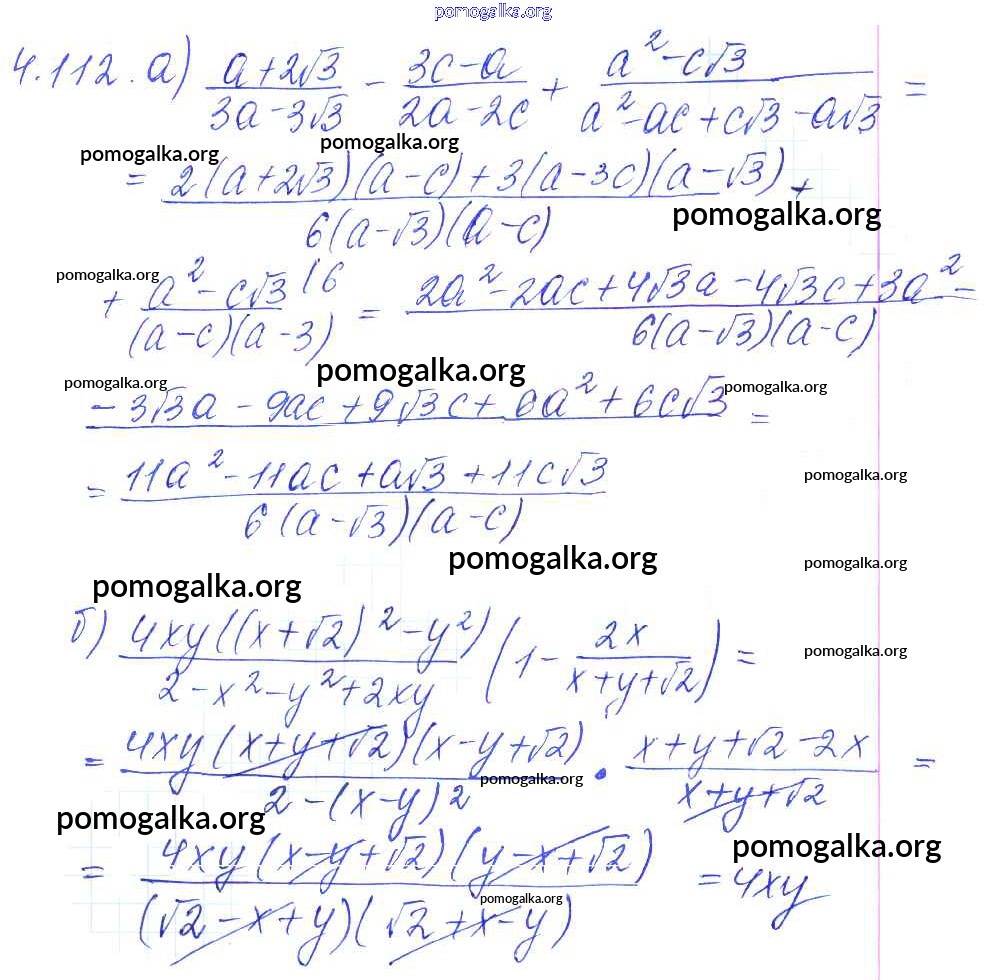 pomogalka.org
4.112. а) (a+2√3)/(3a-3√3) - (3c-a)/(2a-2c) + (a²-c√3)/(a²-ac+c√3-a√3) =
pomogalka.org pomogalka.org
= (2(a+2√3)(a-c)+3(a-3c)(a-√3))/(6(a-√3)(a-c)) +
pomogalka.org
pomogalka.org
+ (a²-c√3 |6)/((a-c)(a-3)) = (2a²-2ac+4√3a-4√3c+3a²-)/(6(a-√3)(a-c))
pomogalka.org
pomogalka.org pomogalka.org
-3√3a-9ac+9√3c+6a²+6c√3 =
= (11a²-11ac+a√3+11c√3)/(6(a-√3)(a-c))
pomogalka.org
pomogalka.org
pomogalka.org
pomogalka.org
б) (4xy((x+√2)²-y²))/(2-x²-y²+2xy) (1 - 2x/(x+y+√2)) =
pomogalka.org
= (4xy(x+y+√2)(x-y+√2))/(2-(x-y)2) · (x+y+√2-2x)/(x+y+√2) =
pomogalka.org
pomogalka.org
pomogalka.org
= (4xy(x-y+√2)(y-x+√2))/((√2-x+y)(√2+x-y)) = 4xy
pomogalka.org